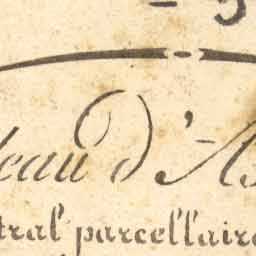 eau d'A
tral parcellaire